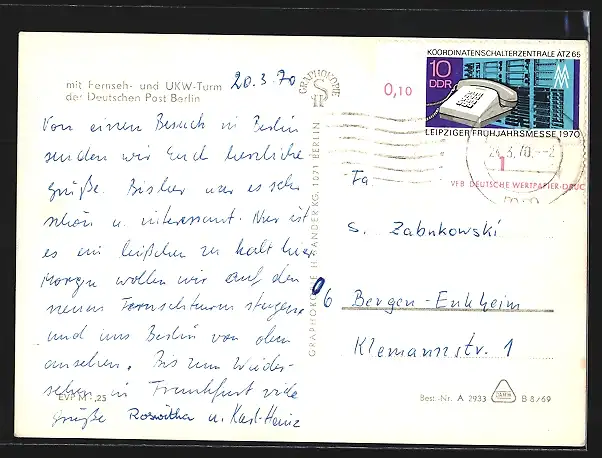 mit Fernseh- und UKW-Turm
der Deutschen Post Berlin
20.3.70
Von einem Besuch in Berlin
senden wir Euch herzliche
Grüße. Bisher war es sehr
schön u. interessant. Nur ist
es ein bißchen zu kalt hier.
Morgen wollen wir auf den
neuen Fernsehturm steigen
und uns Berlin von oben
ansehen. Bis zum Wieder-
sehen in Frankfurt viele
Grüße Roswitha u. Karl-Heinz
EVP M -,25
GRAPHOKOPIE
GRAPHOKOPIE H. SANDER KG, 1071 BERLIN
0,10
KOORDINATENSCHALTERZENTRALE ATZ 65
10
DDR
LEIPZIGER FRÜHJAHRSMESSE 1970
24.3.70.-2
1
VEB DEUTSCHE WERTPAPIER-DRUC
Fa.
S. Zabukowski
06 Bergen-Enkheim
Klemannstr. 1
Best.-Nr. A 2933
B 8/69